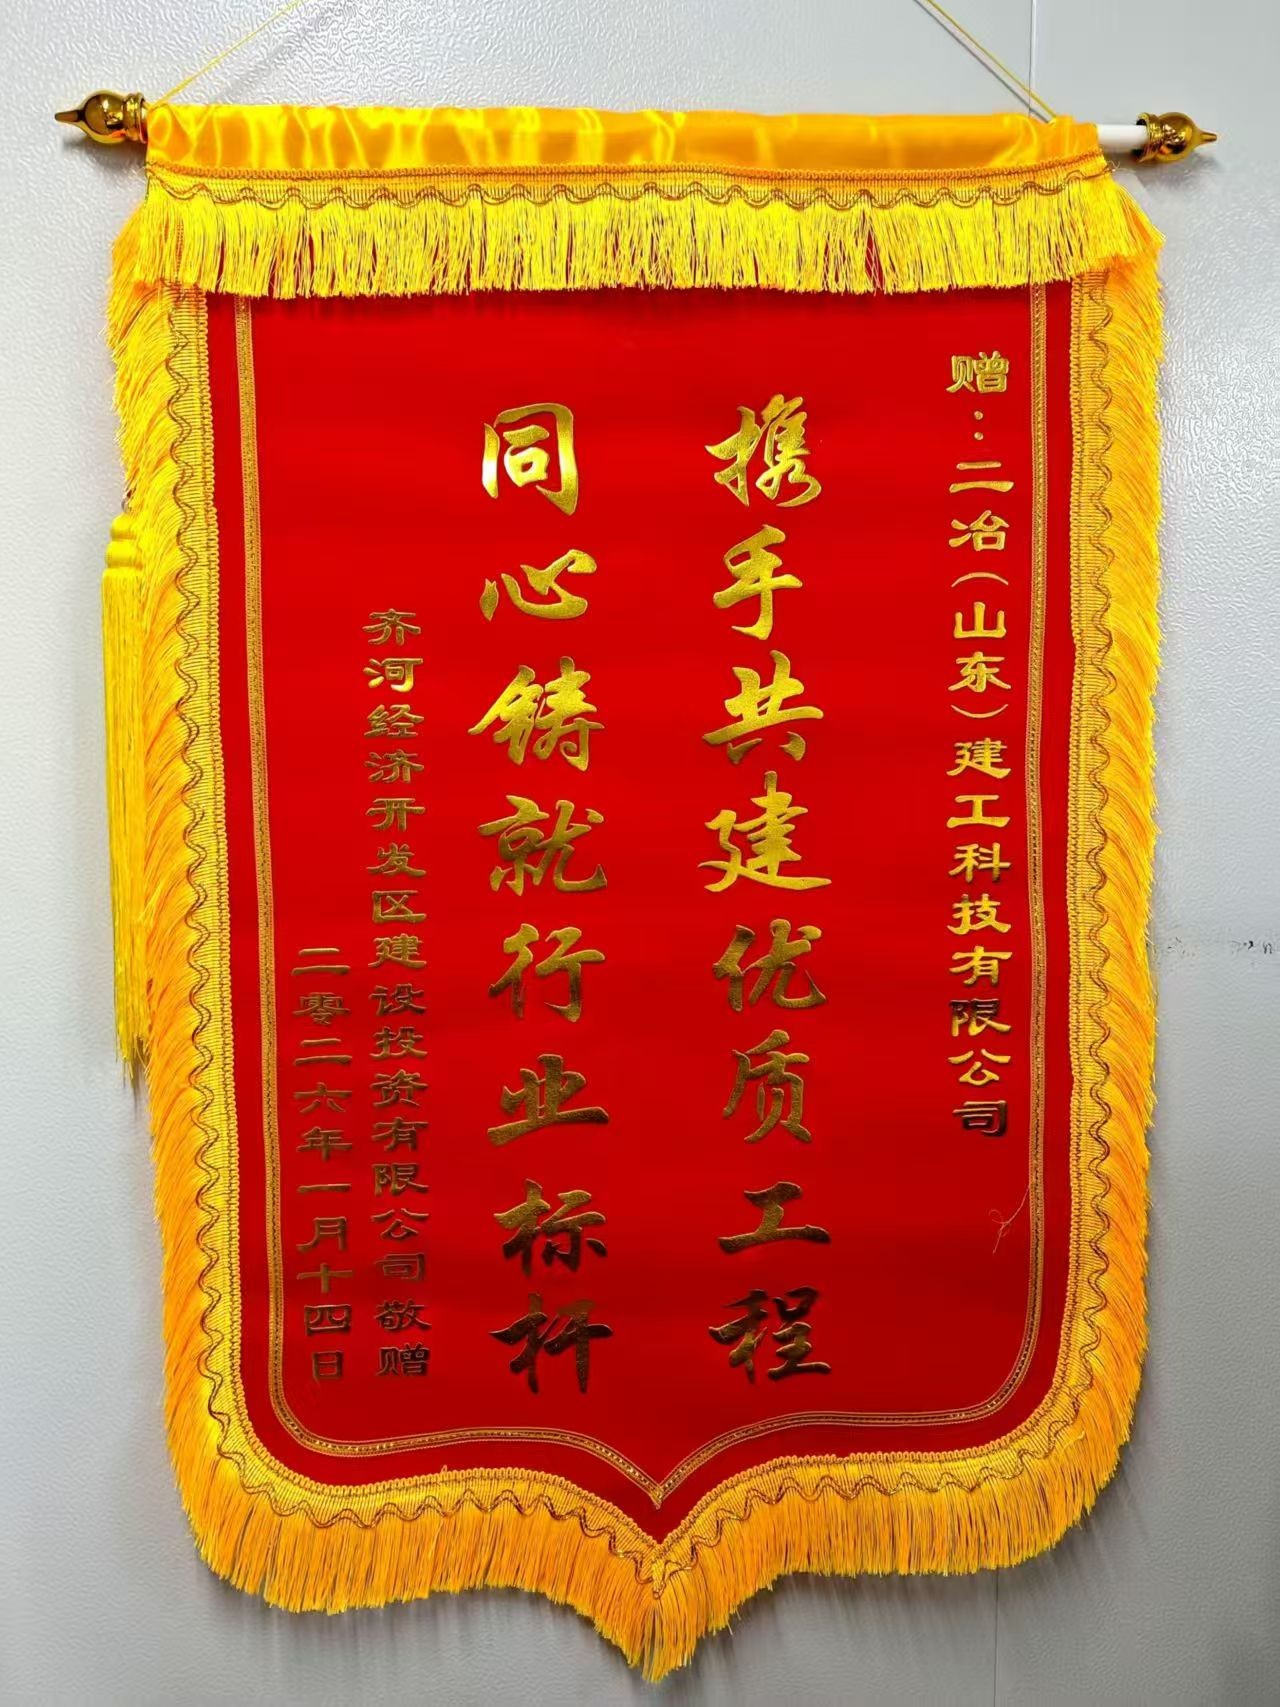 赠：二冶（山东）建工科技有限公司
携手共建优质工程
同心铸就行业标杆
齐河经济开发区建设投资有限公司敬赠
二零二六年一月十四日